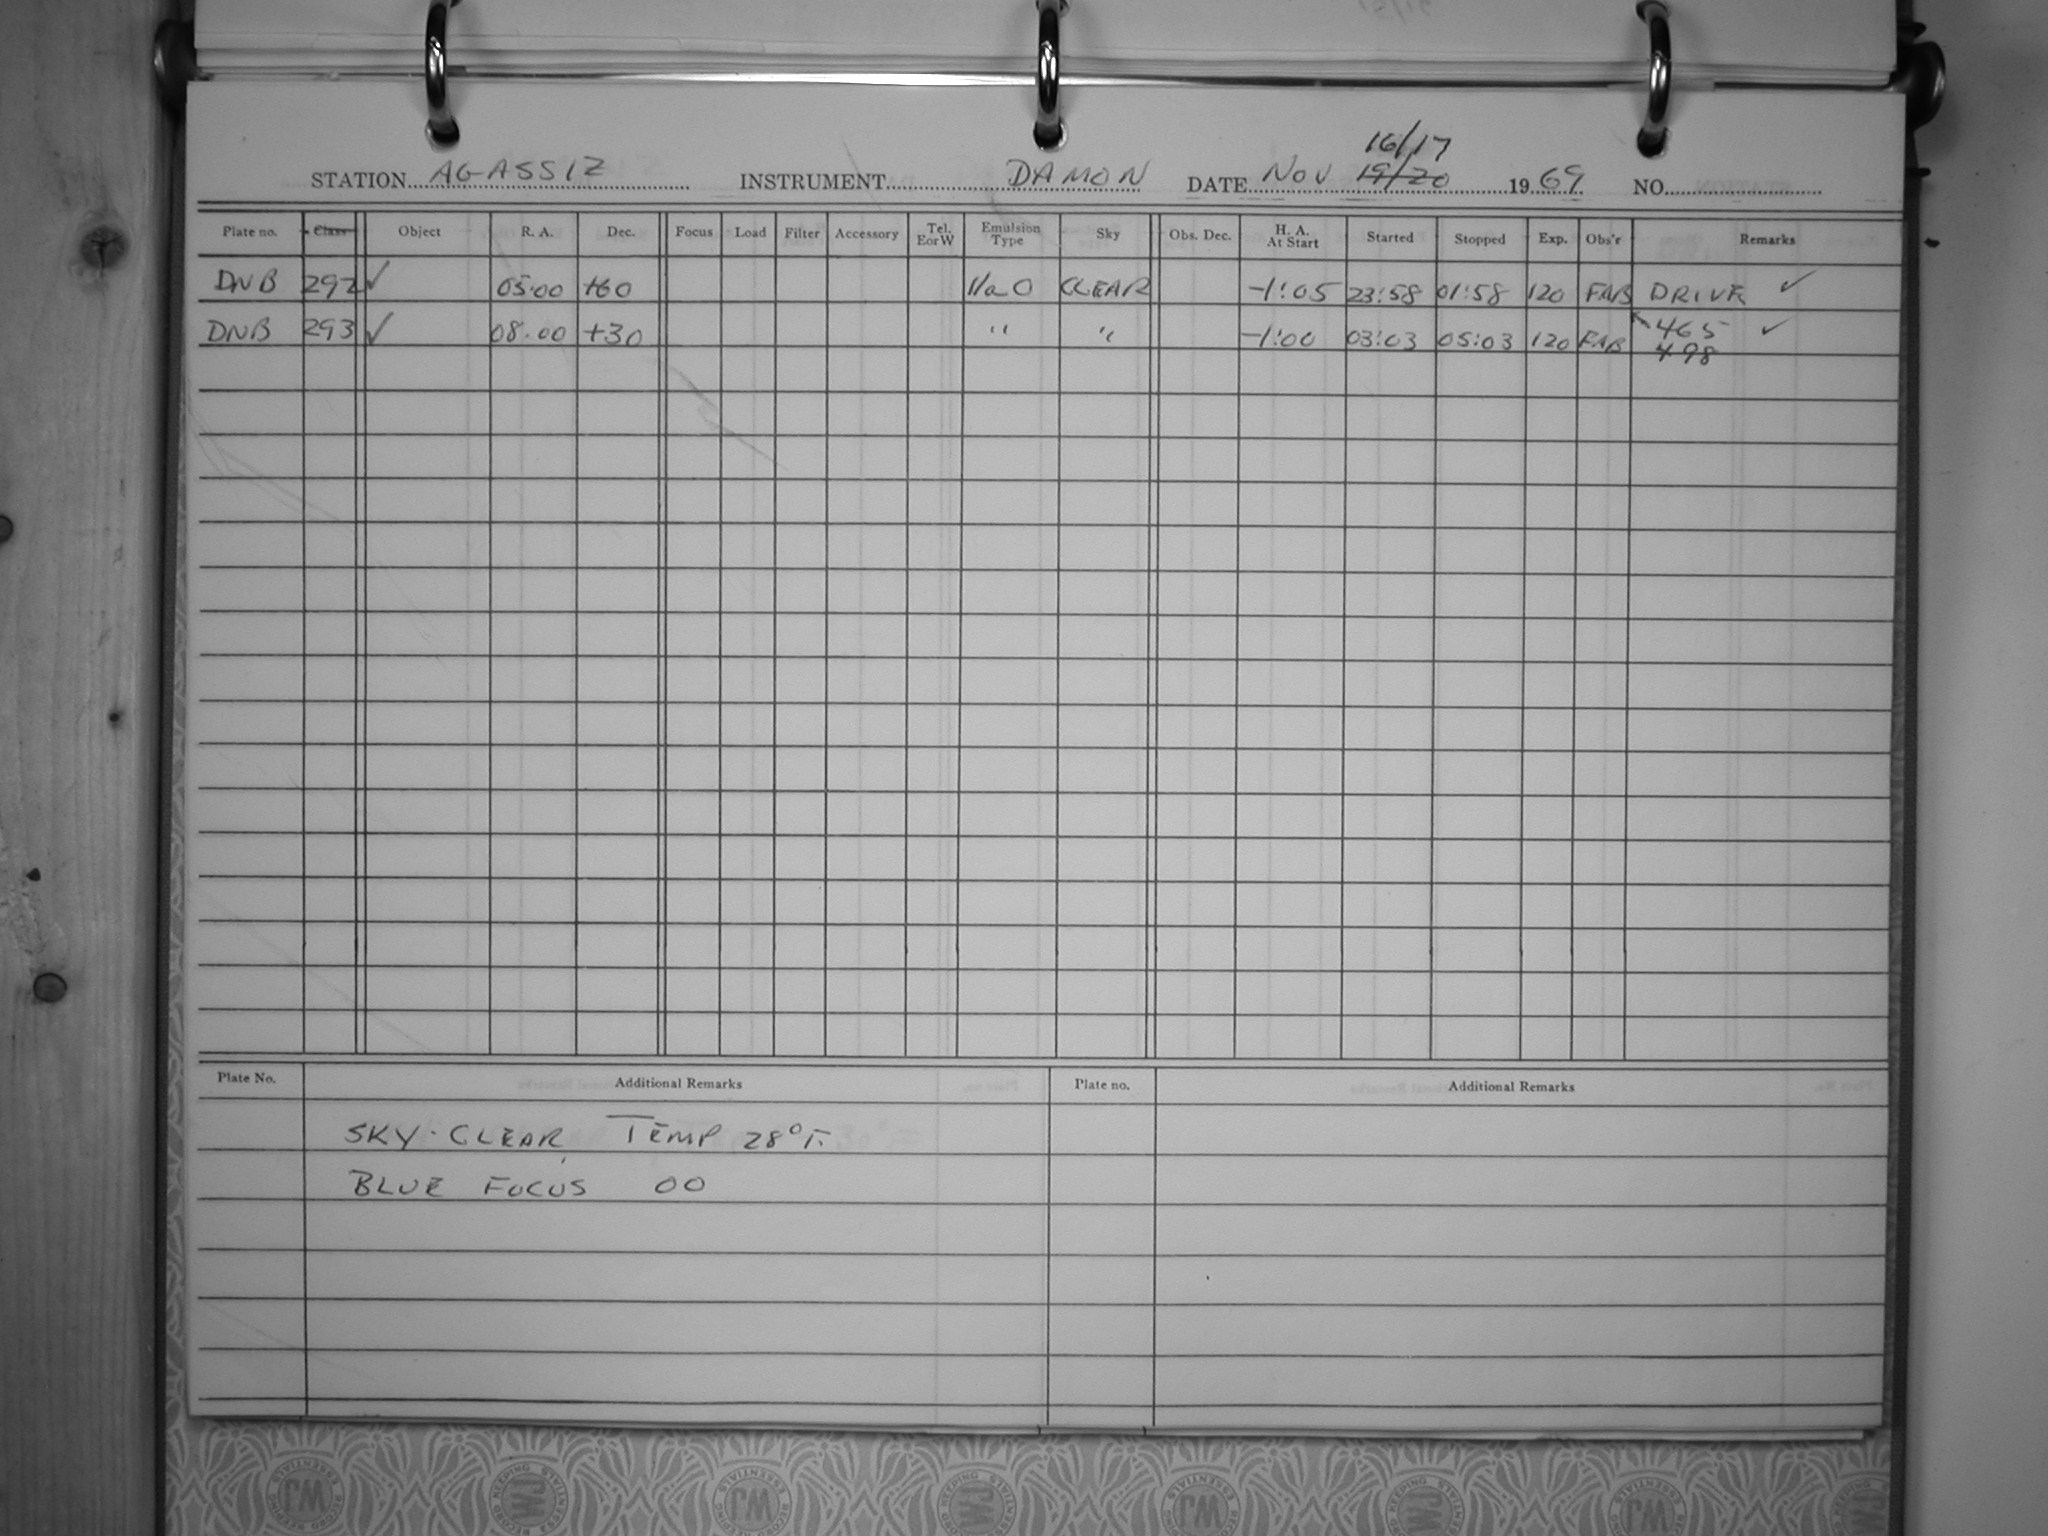 16/17
STATION AGASSIZ INSTRUMENT DAMON DATE NOV 19/20 1969 NO.
Plate no. Class Object R. A. Dec. Focus Load Filter Accessory Tel. E or W Emulsion Type Sky Obs. Dec. H. A. At Start Started Stopped Exp. Obs'r Remarks
DNB 292 ✓ 05:00 +60 IIaO CLEAR -1:05 23:58 01:58 120 FAB DRIVE ✓
DNB 293 ✓ 08:00 +30 " " -1:00 03:03 05:03 120 FAB 465 ✓
498
Plate No. Additional Remarks Plate no. Additional Remarks
SKY-CLEAR, TEMP 28°F.
BLUE FOCUS 00